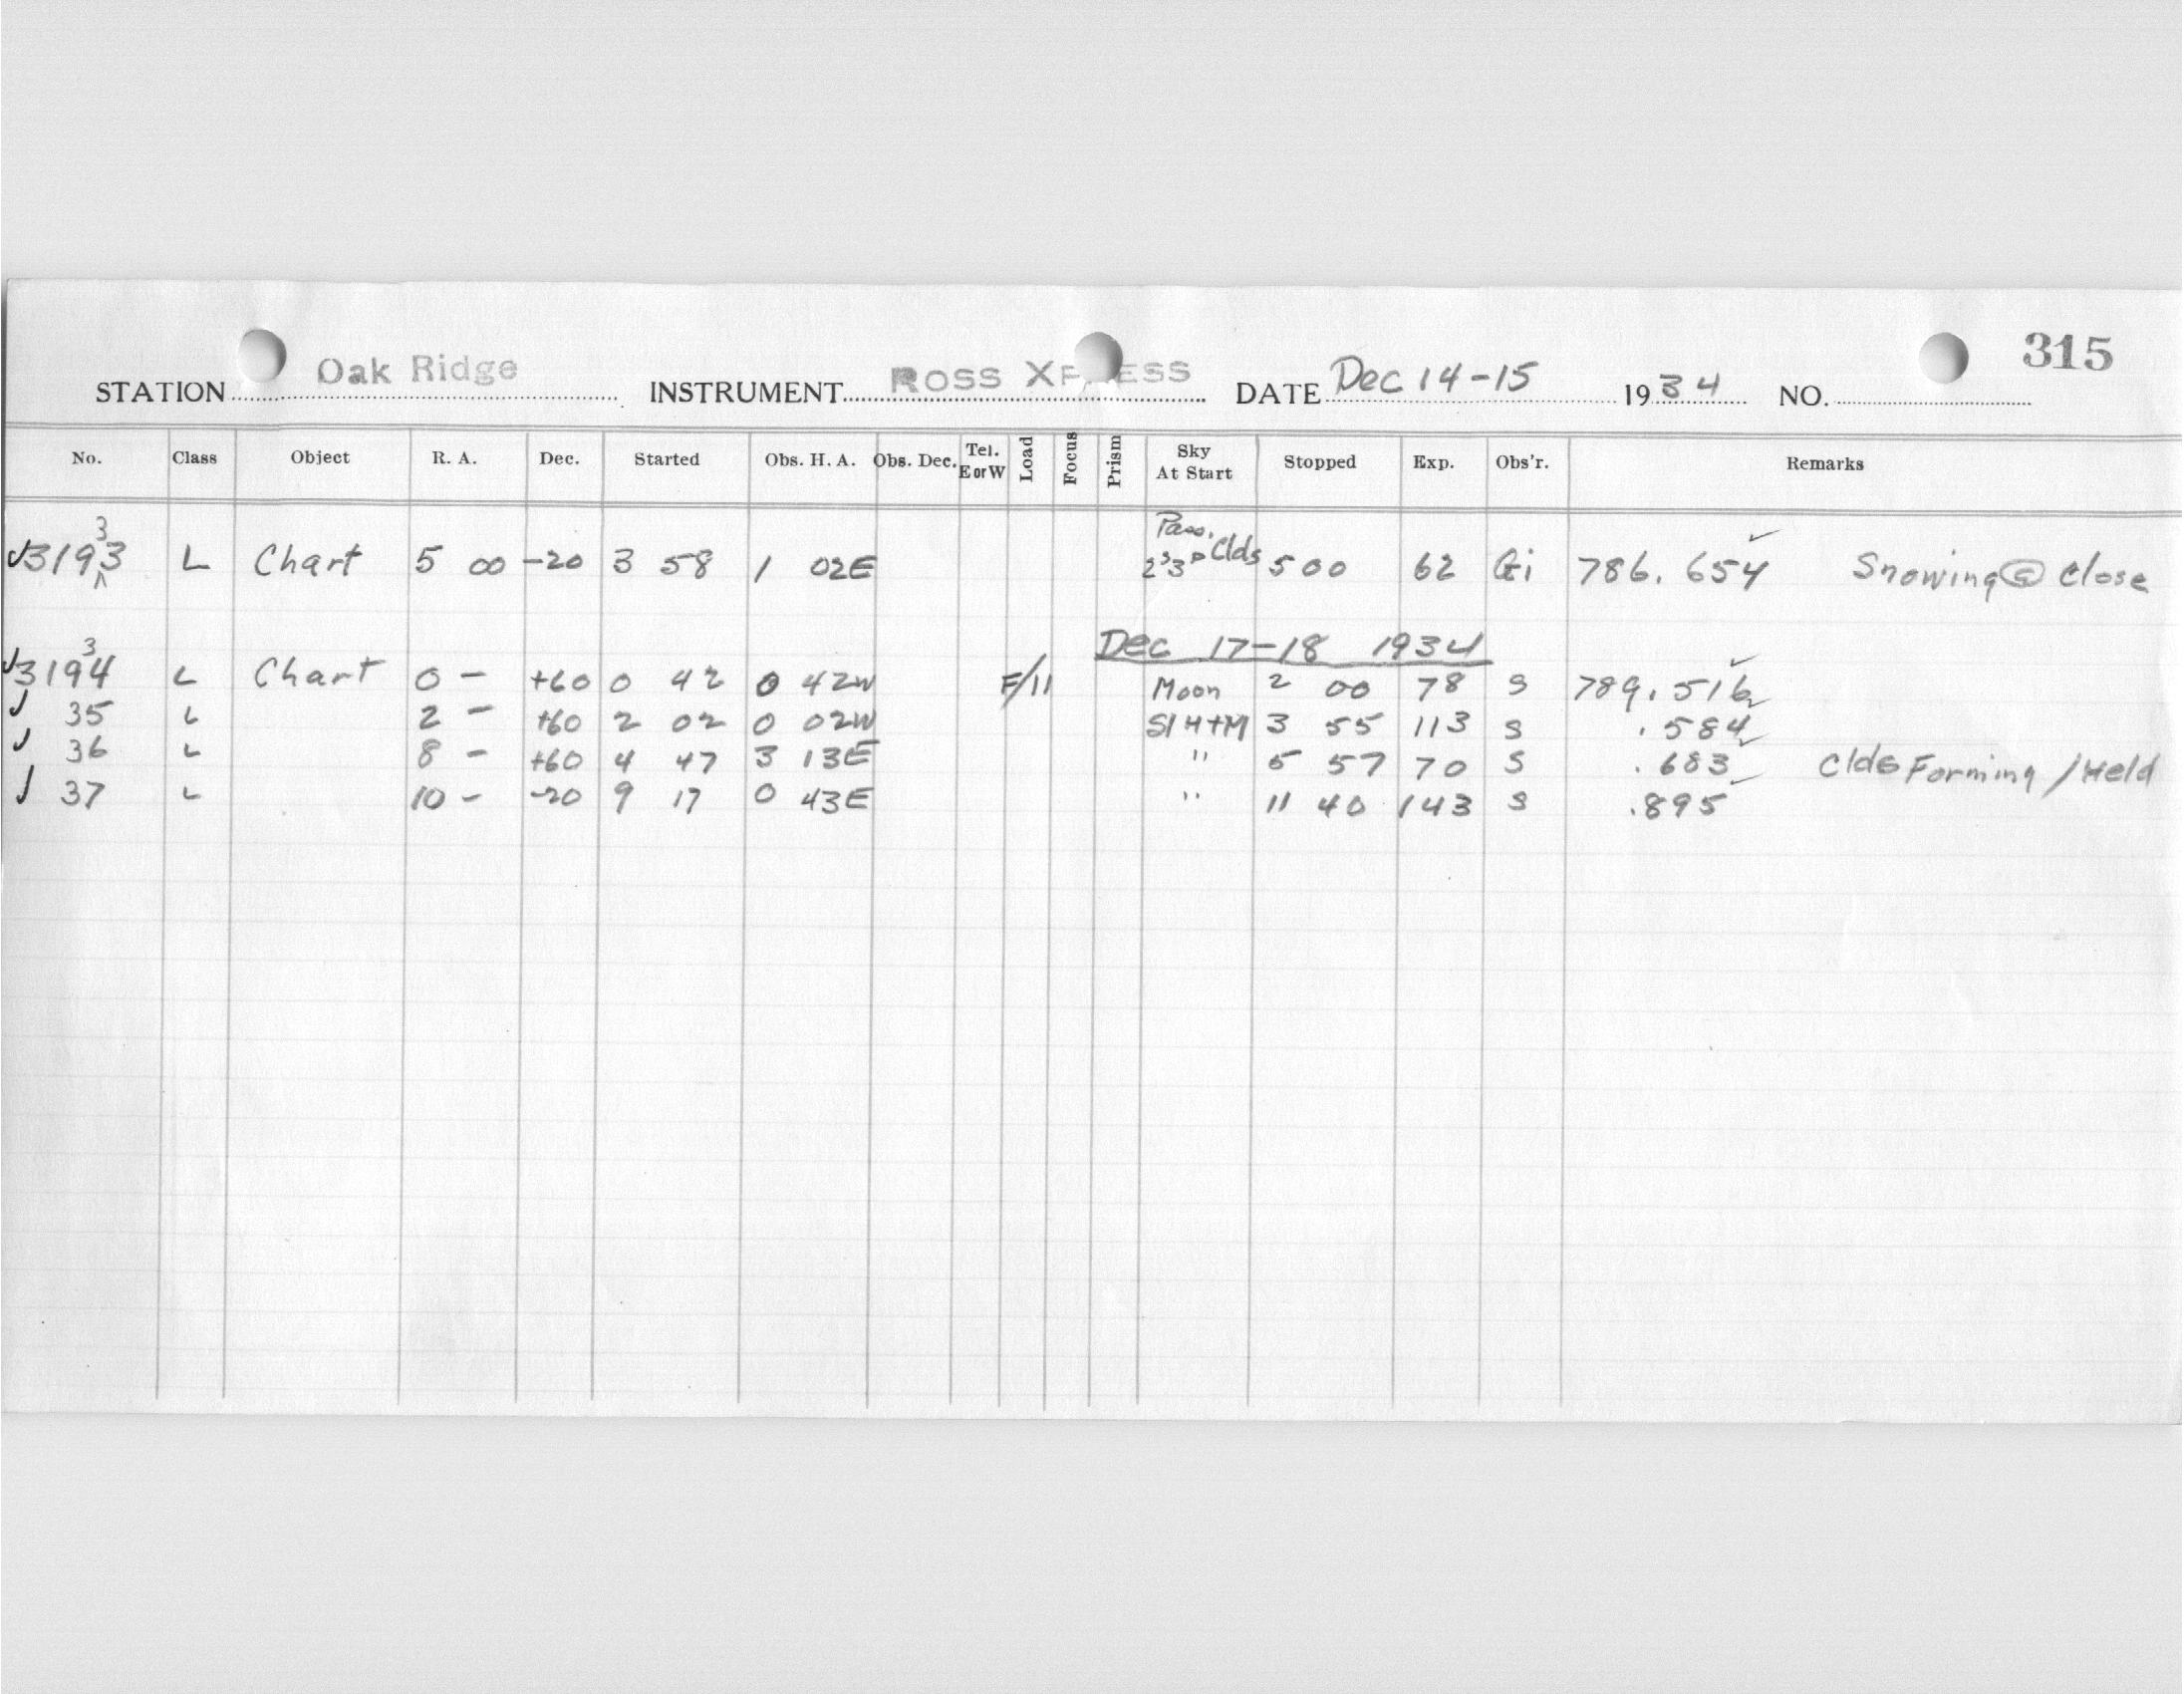 315
STATION Oak Ridge INSTRUMENT ROSS XPRESS DATE Dec 14-15 1934 NO.
No. Class Object R. A. Dec. Started Obs. H. A. Obs. Dec. Tel. E or W Load Focus Prism Sky At Start Stopped Exp. Obs'r. Remarks
3
Pass. Clds
3193 L Chart 5 00 -20 3 58 1 02E 5 00 62 Gi 786.654 Snowing @ Close
Dec 17-18 1934
3
3194 L Chart 0 - +60 0 42 0 42W F/11 Moon 2 00 78 S 789.516
35 L 2 - +60 2 02 0 02W Sl H+M 3 55 113 S .584
36 L 8 - +60 4 47 3 13E " 5 57 70 S .683 Clds Forming / Held
37 L 10 - -20 9 17 0 43E " 11 40 143 S .895